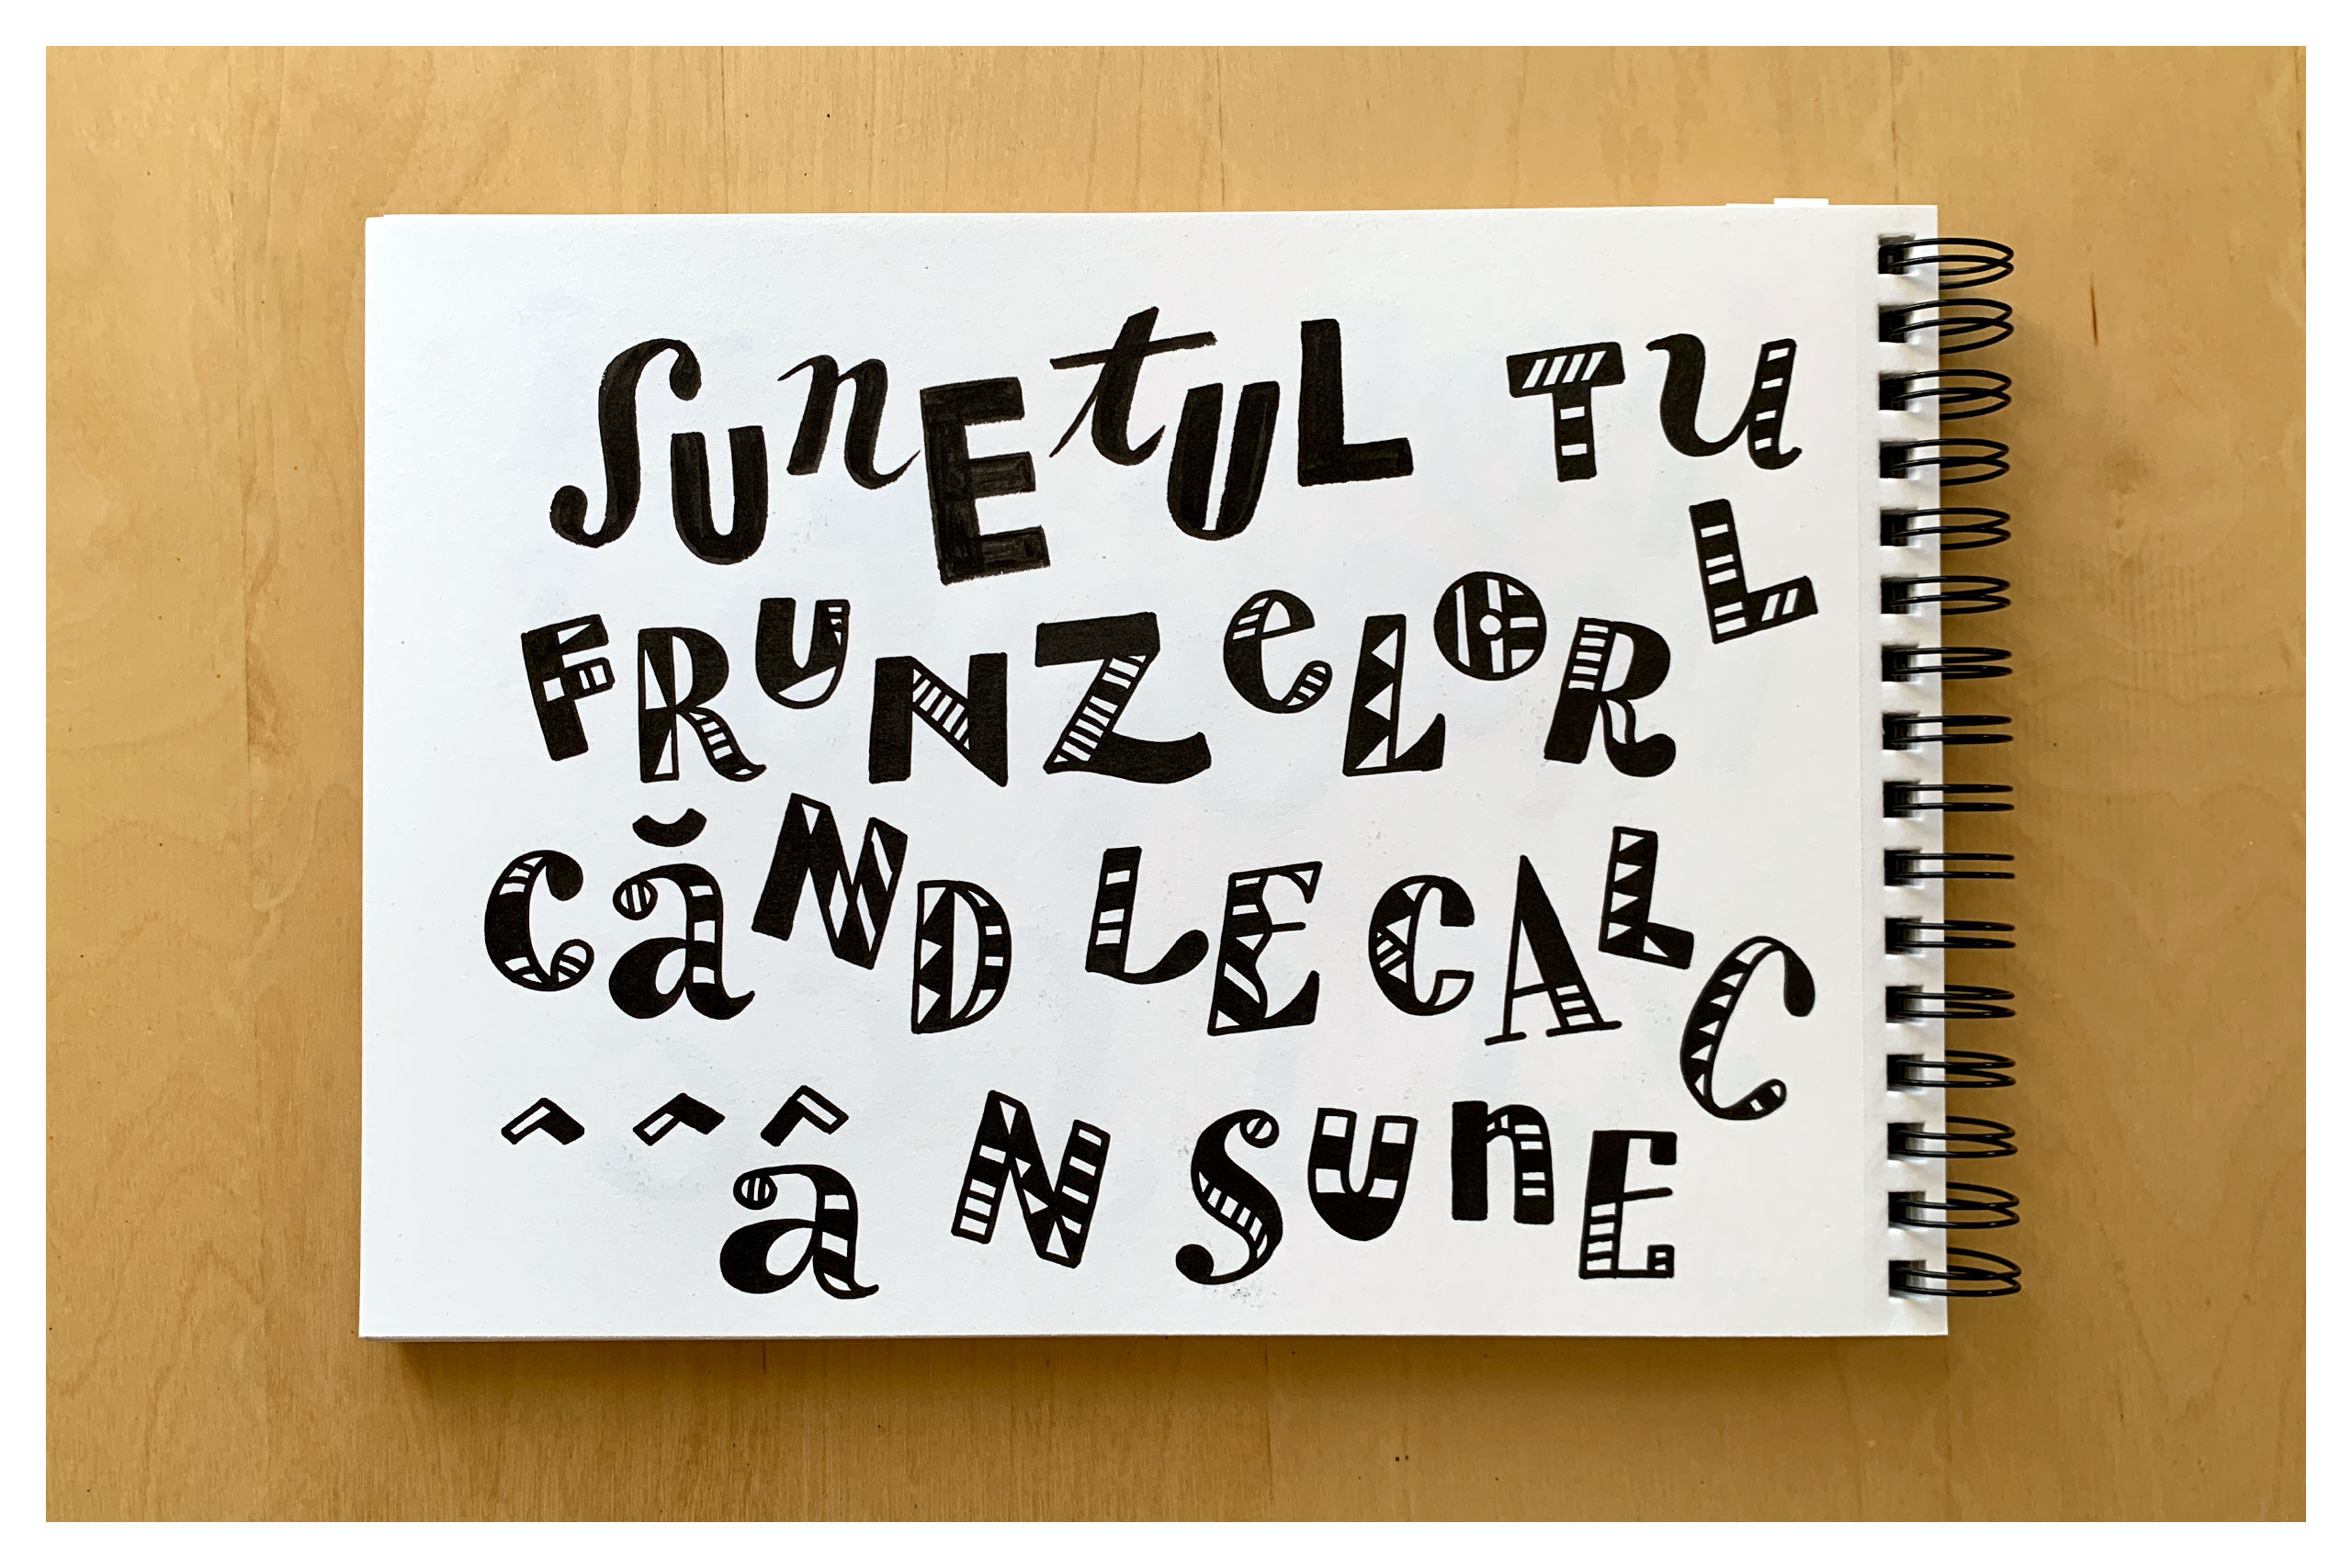 SUnEtUL TUL
FRUNZeLOR
CăND LE CALC
^ ^ â N SunE